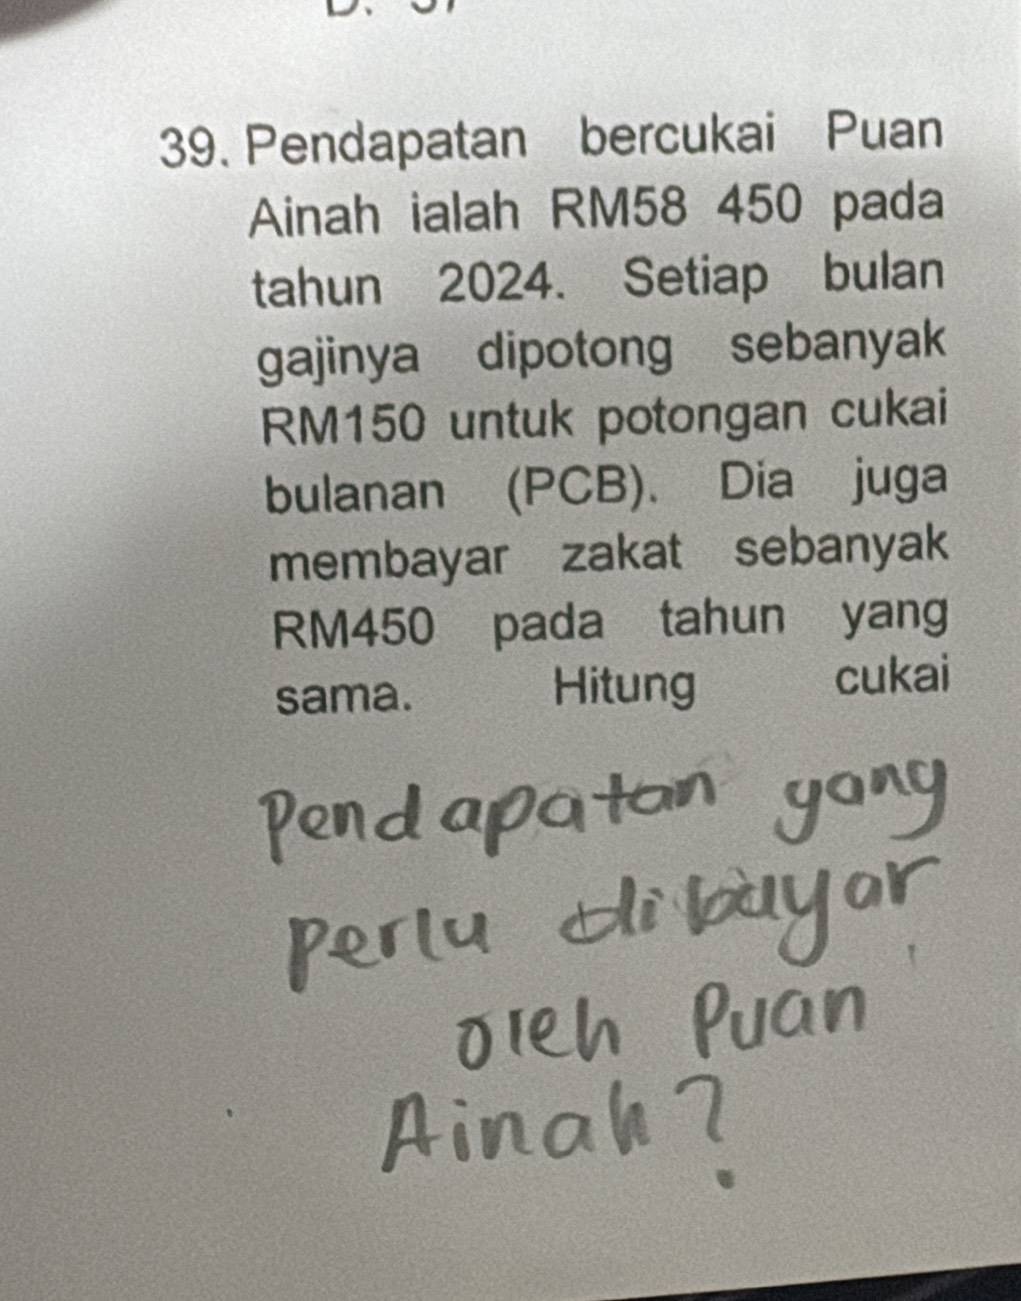 39. Pendapatan bercukai Puan
Ainah ialah RM58 450 pada
tahun 2024. Setiap bulan
gajinya dipotong sebanyak
RM150 untuk potongan cukai
bulanan (PCB). Dia juga
membayar zakat sebanyak
RM450 pada tahun yang
sama. Hitung cukai
Pendapatan yang
perlu dibayar
oleh Puan
Ainah?